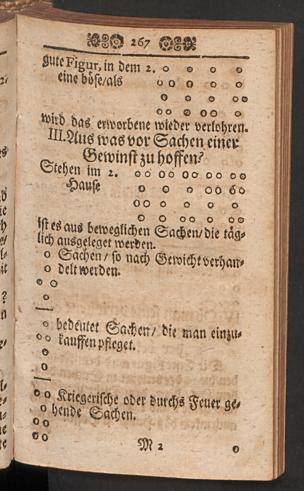 267
gute Figur, in dem 2.
eine böse/als
wird das erworbene wieder verlohren.
III. Aus was vor Sachen einer
Gewinst zu hoffen?
Stehen im 2.
Hause
ist es aus beweglichen Sachen/ die täg-
lich ausgeleget werden.
Sachen/ so nach Gewicht verhan-
delt werden.
bedeutet Sachen/ die man einzu-
kauffen pfleget.
Kriegerische oder durchs Feuer ge-
hende Sachen.
M 2